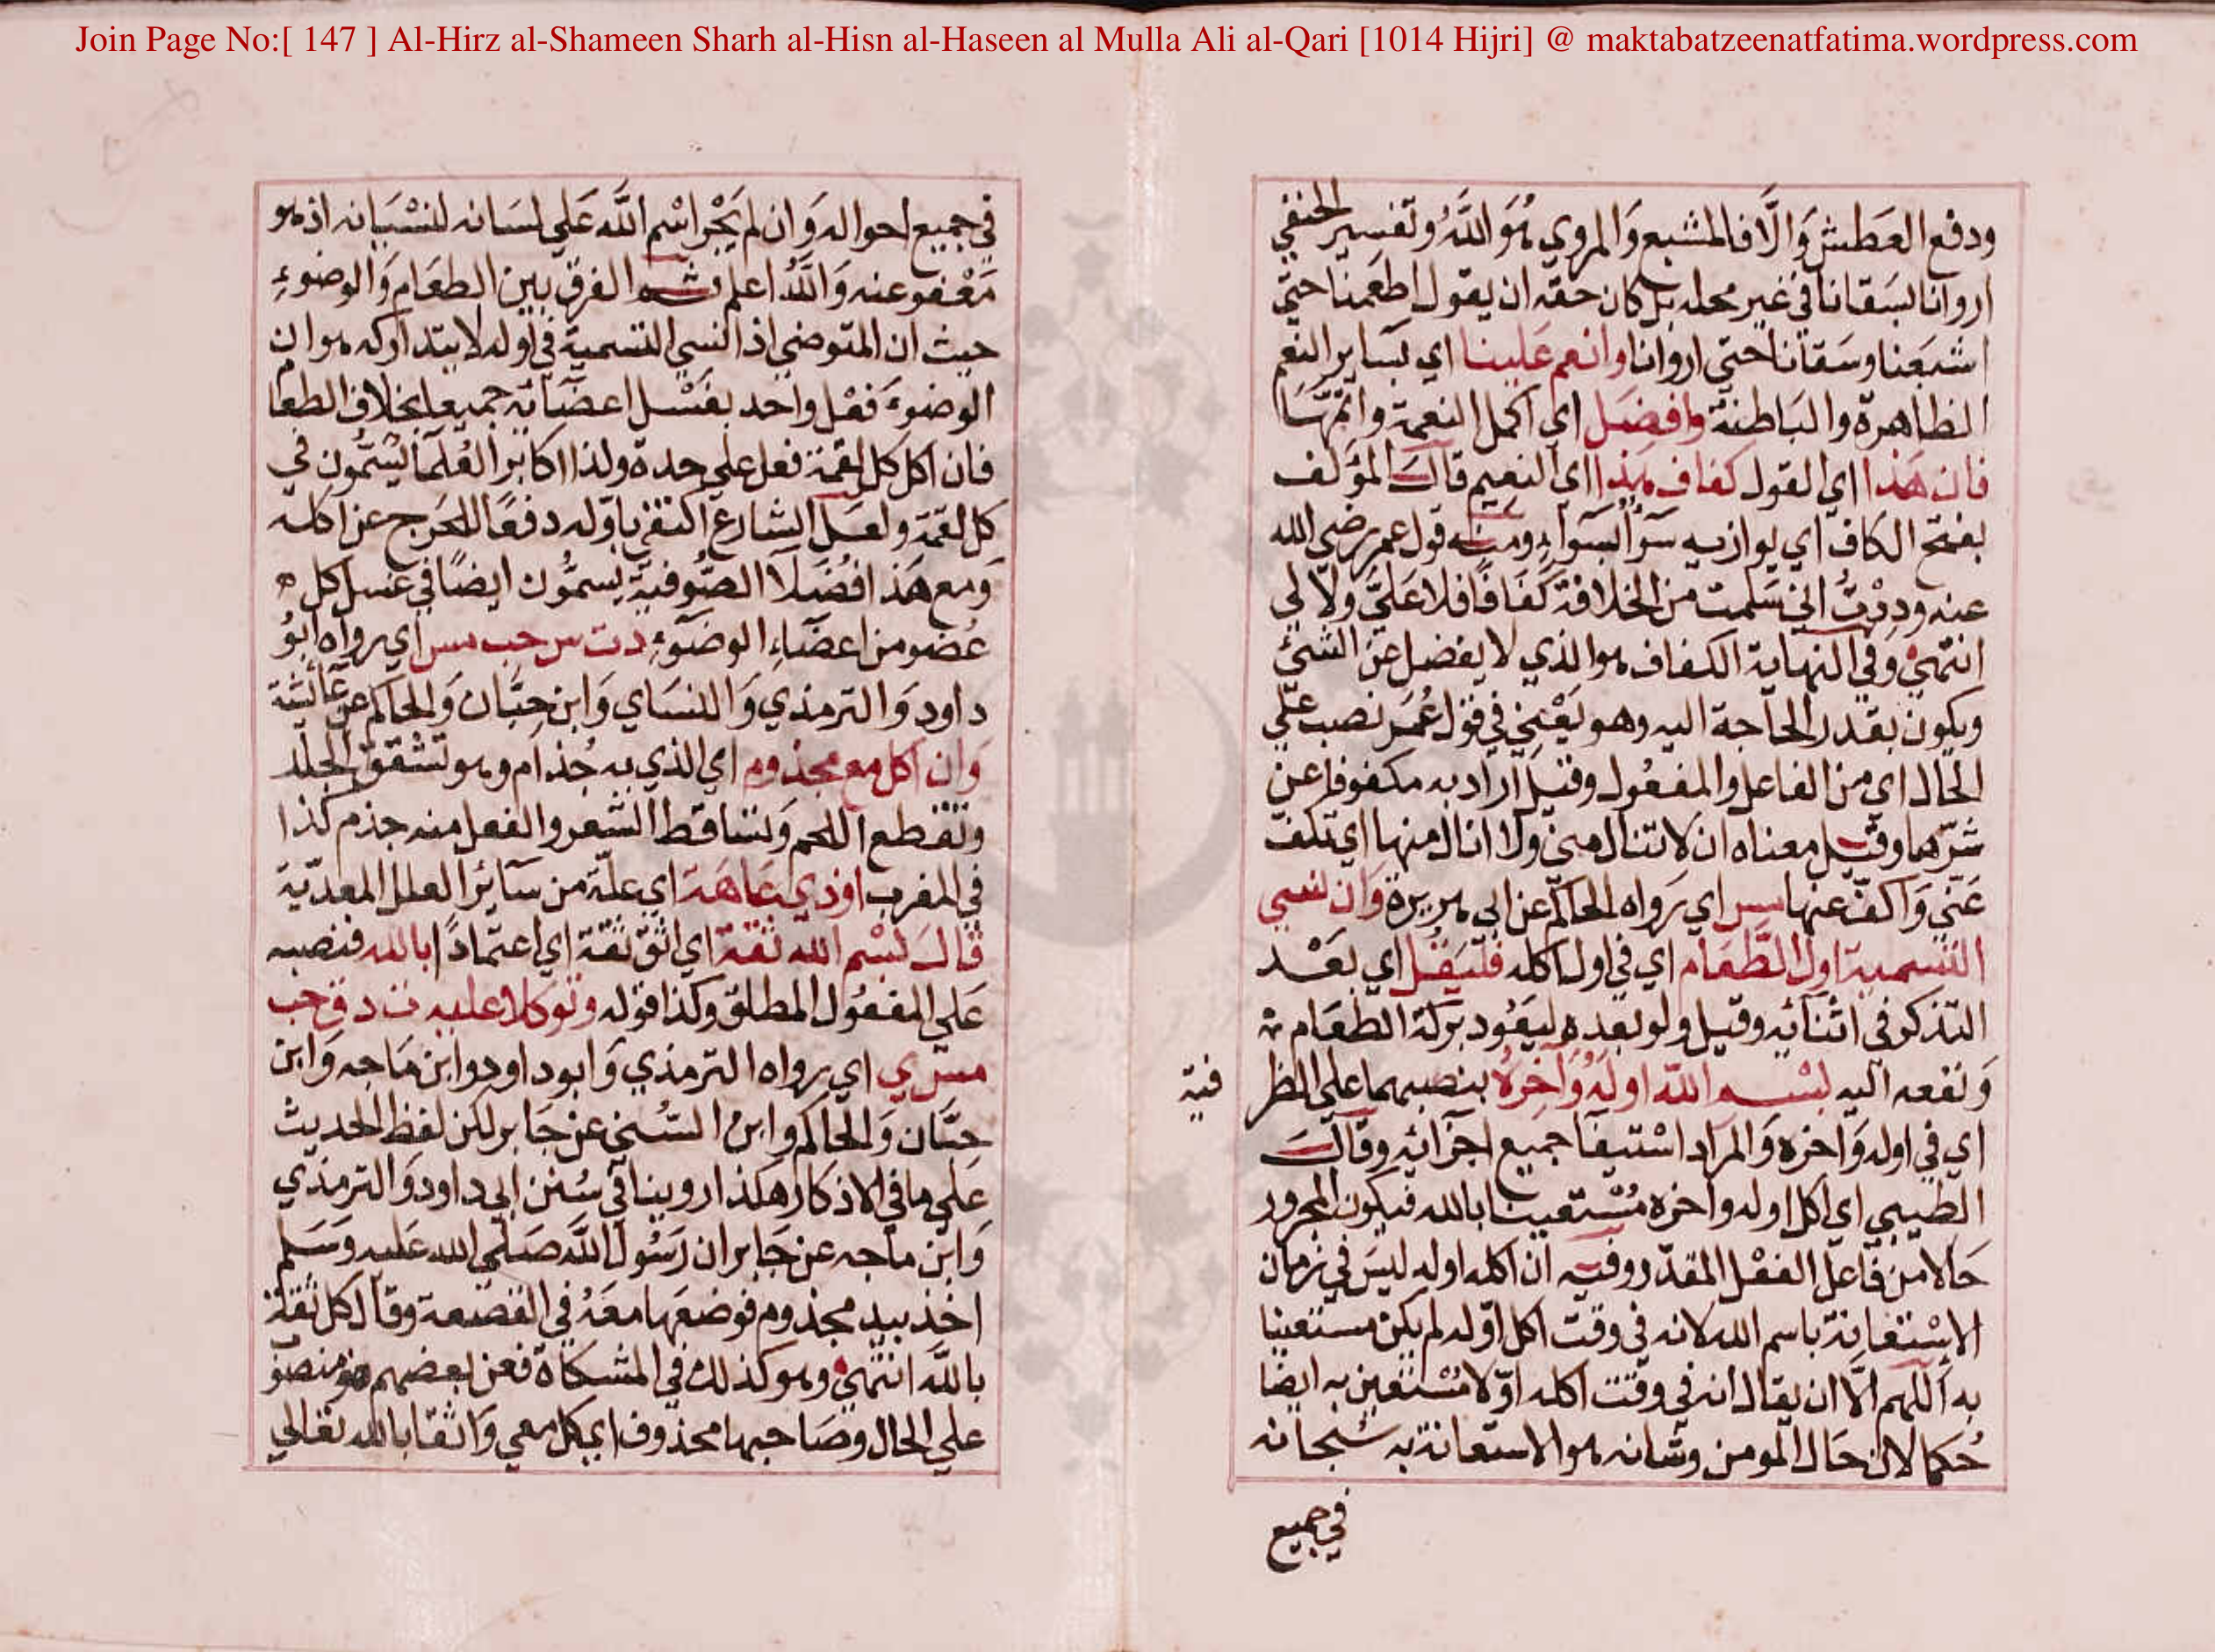 Join Page No:[ 147 ] Al-Hirz al-Shameen Sharh al-Hisn al-Haseen al Mulla Ali al-Qari [1014 Hijri] @ maktabatzeenatfatima.wordpress.com
ودفع العَطش وَالَّا فالمشبع وَالمروي هُوَ اللَّهُ وتفسير الحنفي
اروانا بسَقانا في غير محله بل كان حقه ان يقول اطعَمنا حتي
اشبَعنا وسَقانا حتي اروانا وانعم عَلينا اي بسَاير النعم
الظاهرة والبَاطنة وافضَل اي اكمل النعمة واتمهَا
فان هَذا اي القول كفاف هذا اي النعيم قالَ المؤلف
بفتح الكاف اي يوازيه سَوآءً بسَوآءٍ ومنه قول عمر رضي الله
عنه ودِدْتُ اني سَلمت من الخلافة كَفَافًا فلا عَلَيَّ ولا لي
انتهي وفي النهاية الكفاف هو الذي لا يفضل عن الشئ
ويكون بقدر الحاجة اليه وهو يَعْني في قول عُمَر نصب علي
الحَال اي من الفاعل والمفعُول وقيل اراد به مكفوفا عني
شرّها وقيل معناه ان لا تنال مني ولا انال منها اي تكف
عَني وَاكفّ عنها مس اي رَواه الحاكم عن ابي هريرة وَان نسي
التسمية اول الطَّعَام اي في اول اكله فليَقُل اي بَعْد
التذكر في اثنآئه وقيل ولو بعده ليَعُود بركة الطعَام
وَنفعه اليه بسْم الله اولهُ وَآخِرهُ بنصبهما علي الظر
فية
اي في اوله وَاخره وَالمراد اسْتيفآ جَميع اجزائه وقالَ
الطيبي اي اكل اوله واخره مُسْتعينا بالله فيكون المجرور
حَالا من فاعل الفعْل المقدّر وفيه ان اكله اوله ليسَ في زمان
الاسْتعَانة باسم الله لانه في وقت اكل اوّله لم يكن مستعينا
به اَللهم الَّا ان يقال انه في وقت اكله اوّلا مُسْتعين به ايضًا
حُكما لان حَال المومن وشانه هو الاستعانة به سُبحانه
في جميع
في جميع احواله وَان لم يَجْر اسْم اللَّه عَلي لسَانه لنسْيَانه اذ هو
مَعْفو عنه وَاللَّهُ اعلم ثم الفرق بين الطعَام وَالوضوءِ
حيث ان المتوضي اذا نسي التسمية في اوله لا يتداركه هو ان
الوضوءَ فعْل واحد بغسْل اعضَآئه جميعها بخلاف الطعا
فان اكل كل لقمة فعل علي حدة ولذا اكابر العُلمَآ يُسَمُّون في
كل لقمة ولعَل الشارع اكتفي باوّله دفعًا للحَرج عن اكله
وَمع هَذا فضَلا الصُّوفيَّة يسمُّون ايضًا في غسل كل
عُضو من اعضَاءِ الوضوءِ دت س حب مس اي رواه ابُو
داود وَالترمذي وَالنسَاي وَابن حِبَّان وَالحاكم عن عَائشة
وَان اكل مع مجذوم اي الذي به جُذام وهو تشقق الجلد
وتقطع اللحم وَتساقط الشعر والفعل منه جذم كذا
في المغرب او ذي عَاهَة اي علّة من سآئر العلل المعدّية
قالَ بسْم الله ثقة اي اثق ثقة اي اعتمادًا بالله فنصبه
عَلي المفعُول المطلق وكذا قوله وتوكلا عليه ت د ق حب
مس ي اي رواه الترمذي وَابو داود وابن مَاجه وَابن
حبَّان وَالحاكم وابن السُّني عن جَابر لكن لفظ الحديث
عَلي ما في الاذكار هكذا روينا في سُنن ابي داود وَالترمذي
وَابن ماجه عن جَابر ان رَسُول اللَّه صَلّي الله عَليه وَسَلم
اخذ بيد مجذوم فوضعَها معَهُ في القصعة وقال كل ثقة
باللَّه انتهي وهو كذلك في المشكاة فعن بعضهم هو منصو
علي الحال وصَاحبها محذوف اي كل معي وَاثقا بالله تعالي